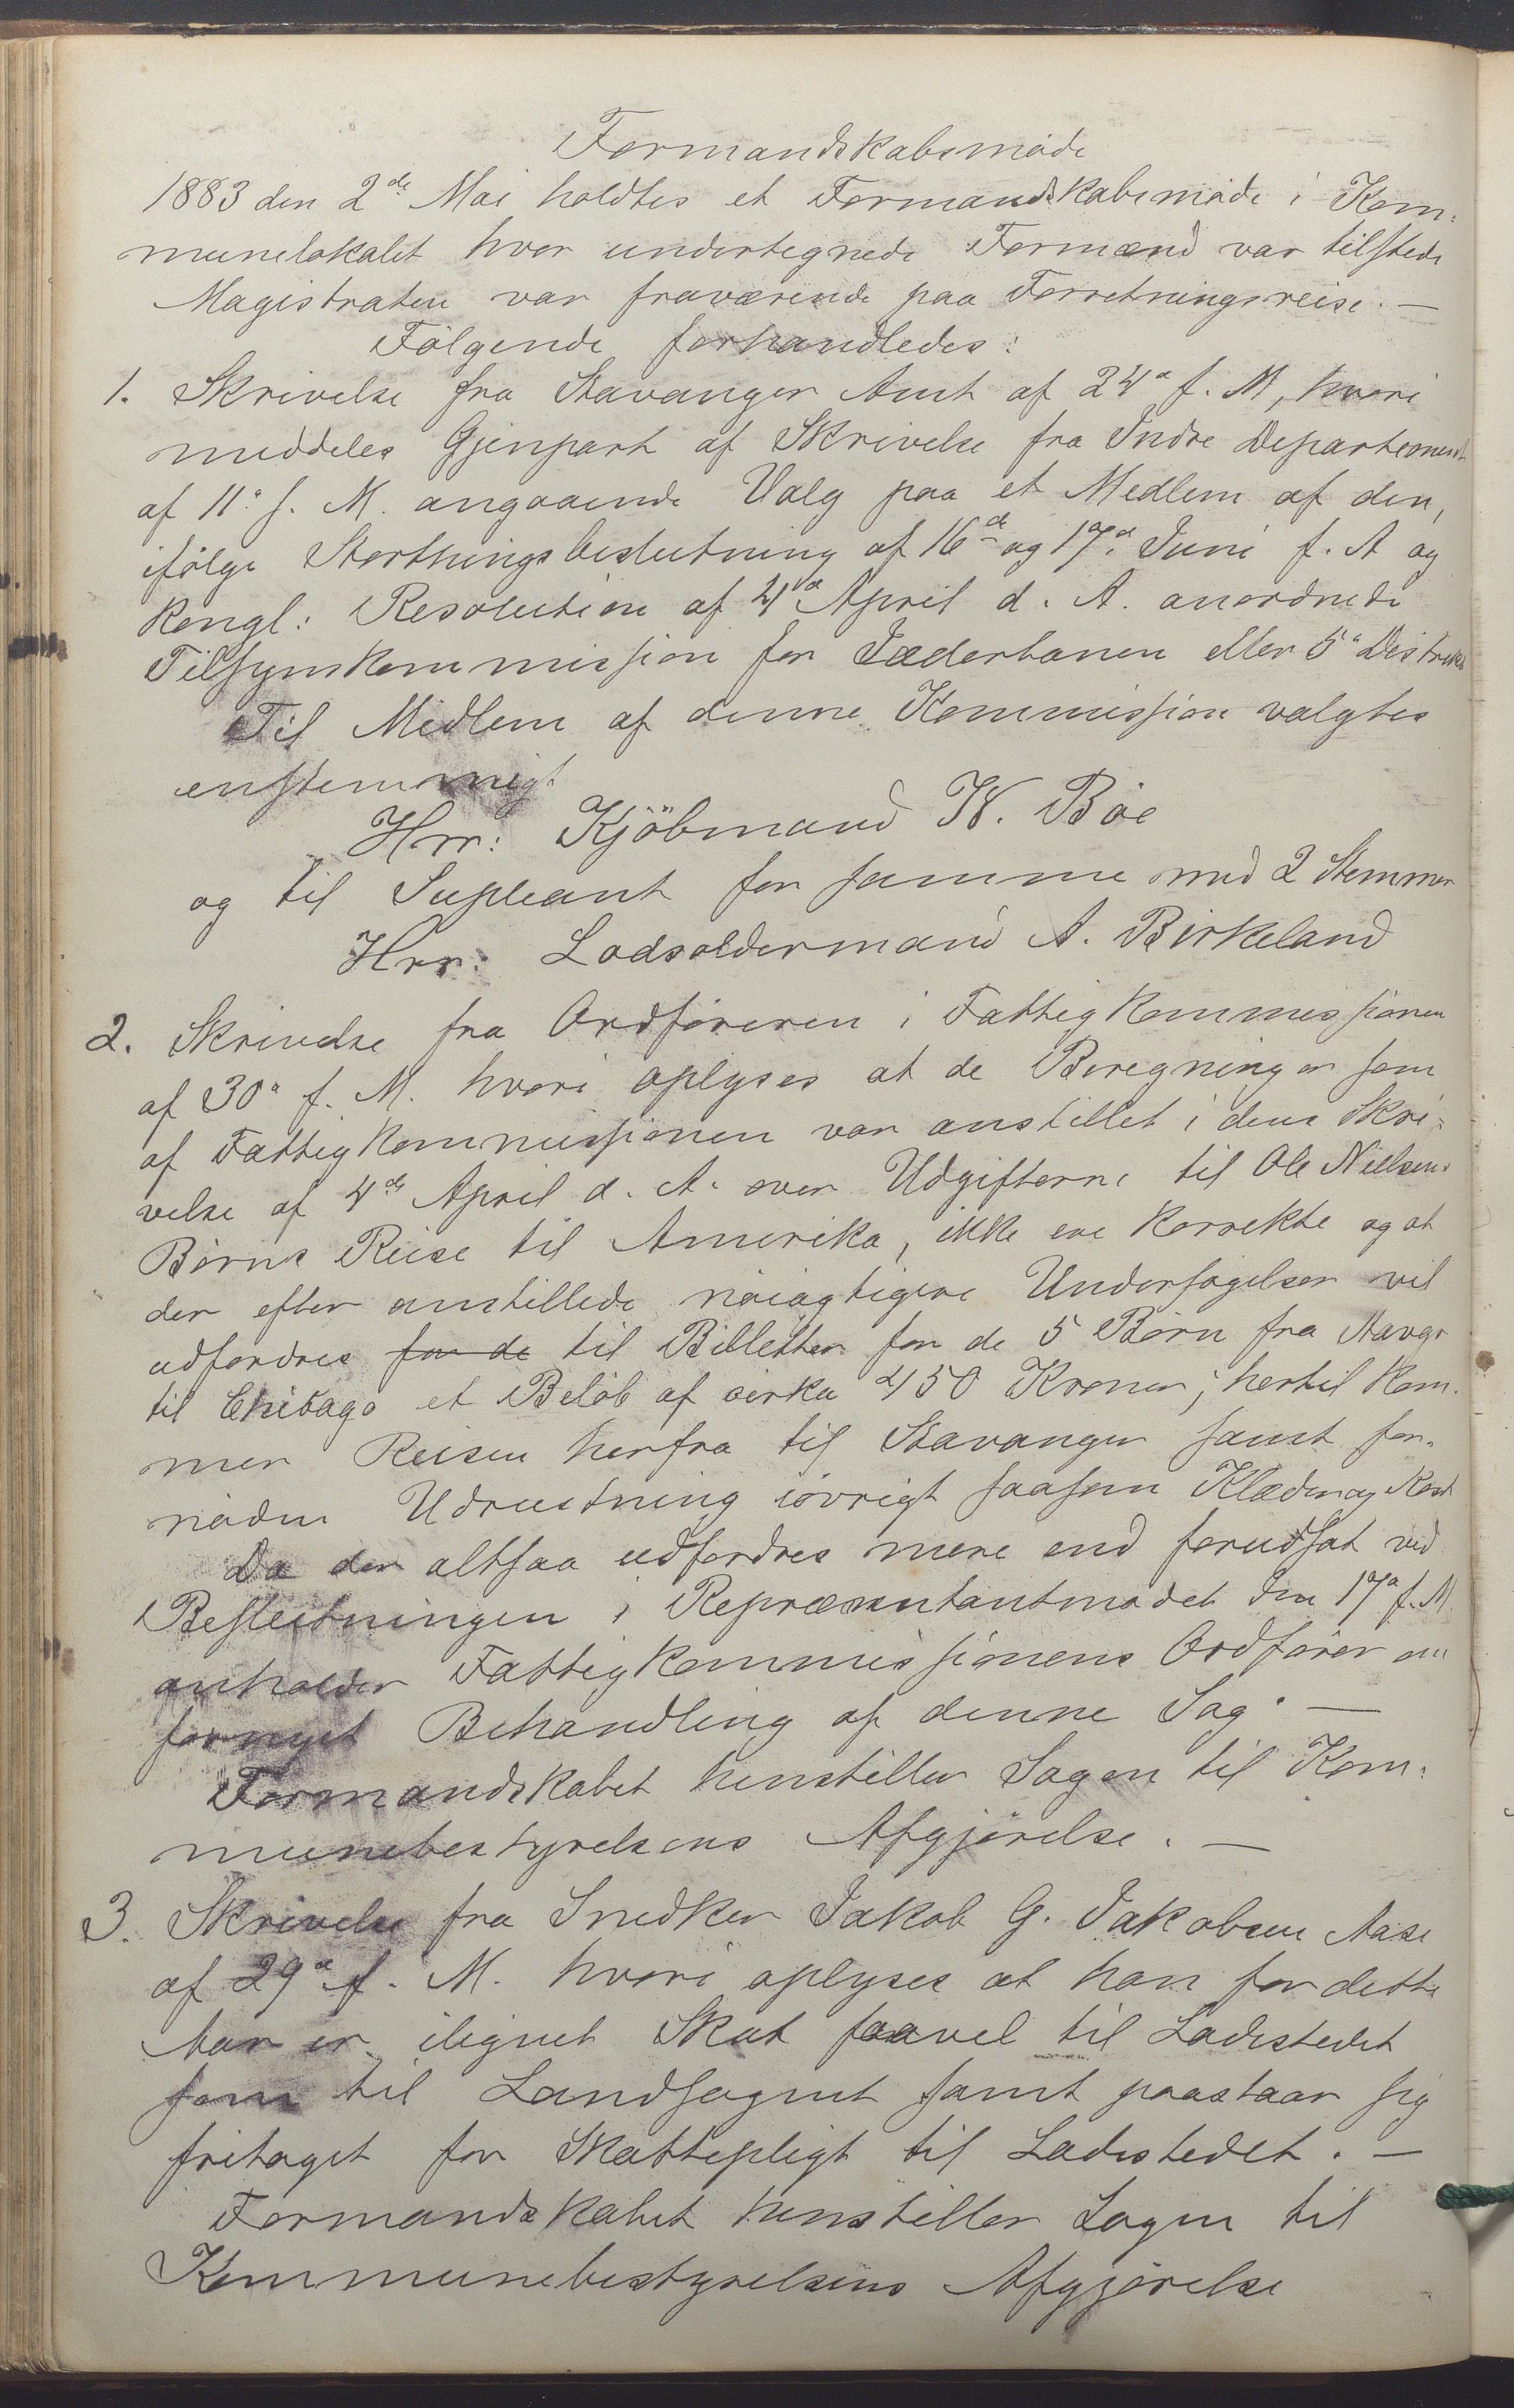 Formandskabsmøde
1883 den 2de Mai holdtes et Formandskabsmøde i Kom-
munelokalet hvor undertegnede Formænd var tilstede
Magistraten var fraværende paa Forretningsreise. —
Følgende forhandledes:
1. Skrivelse fra Stavanger Amt af 24de f. M, hvori
meddeles Gjenpart af Skrivelse fra Indre Departement
af 11te f. M. angaaende Valg paa et Medlem af den,
ifølge Storthingsbeslutning af 16de og 17de Juni f. A og
kongl: Resolution af 4de April d. A. anordnede
Tilsynskommission for Jæderbanen eller 5te Distrikt
Til Medlem af denne Kommission valgtes
enstemmigt
Hrr: Kjöbmand W. Böe
og til Supleant for samme med 2 Stemmer
Hrr: Lodsoldermand A. Birkeland
2. Skrivelse fra Ordføreren i Fattigkommissionen
af 30te f. M. hvori oplyses at de Beregninger som
af Fattigkommissionen var anstillet i dens Skri-
velse af 4de April d. A. over Udgifterne til Ole Nielsens
Børns Reise til Amerika, ikke ere korrekte og at
der efter anstillede nøiagtigere Undersøgelser vil
udfordres for de til Billetter for de 5 Børn fra Stavgr
til Chikago et Beløb af cirka 450 Kroner; hertil kom-
mer Reisen herfra til Stavanger samt for-
nøden Udrustning iøvrigt saasom Klæder og Kost
Da der altsaa udfordres mere end forudsat ved
Beslutningen i Repræsentantmødet den 17de f. M
anholder Fattigkommissionens Ordfører om
fornyet Behandling af denne Sag. —
Formandskabet henstiller Sagen til Kom-
munebestyrelsens Afgjørelse. —
3. Skrivelse fra Snedker Jakob G. Jakobsen Aase
af 29de f. M. hvori oplyses at han for dette
Aar er ilignet Skat saavel til Ladestedet
som til Landsognet samt paastaar sig
fritaget for Skattepligt til Ladestedet. —
Formandskabet henstiller Sagen til
Kommunebestyrelsens Afgjørelse